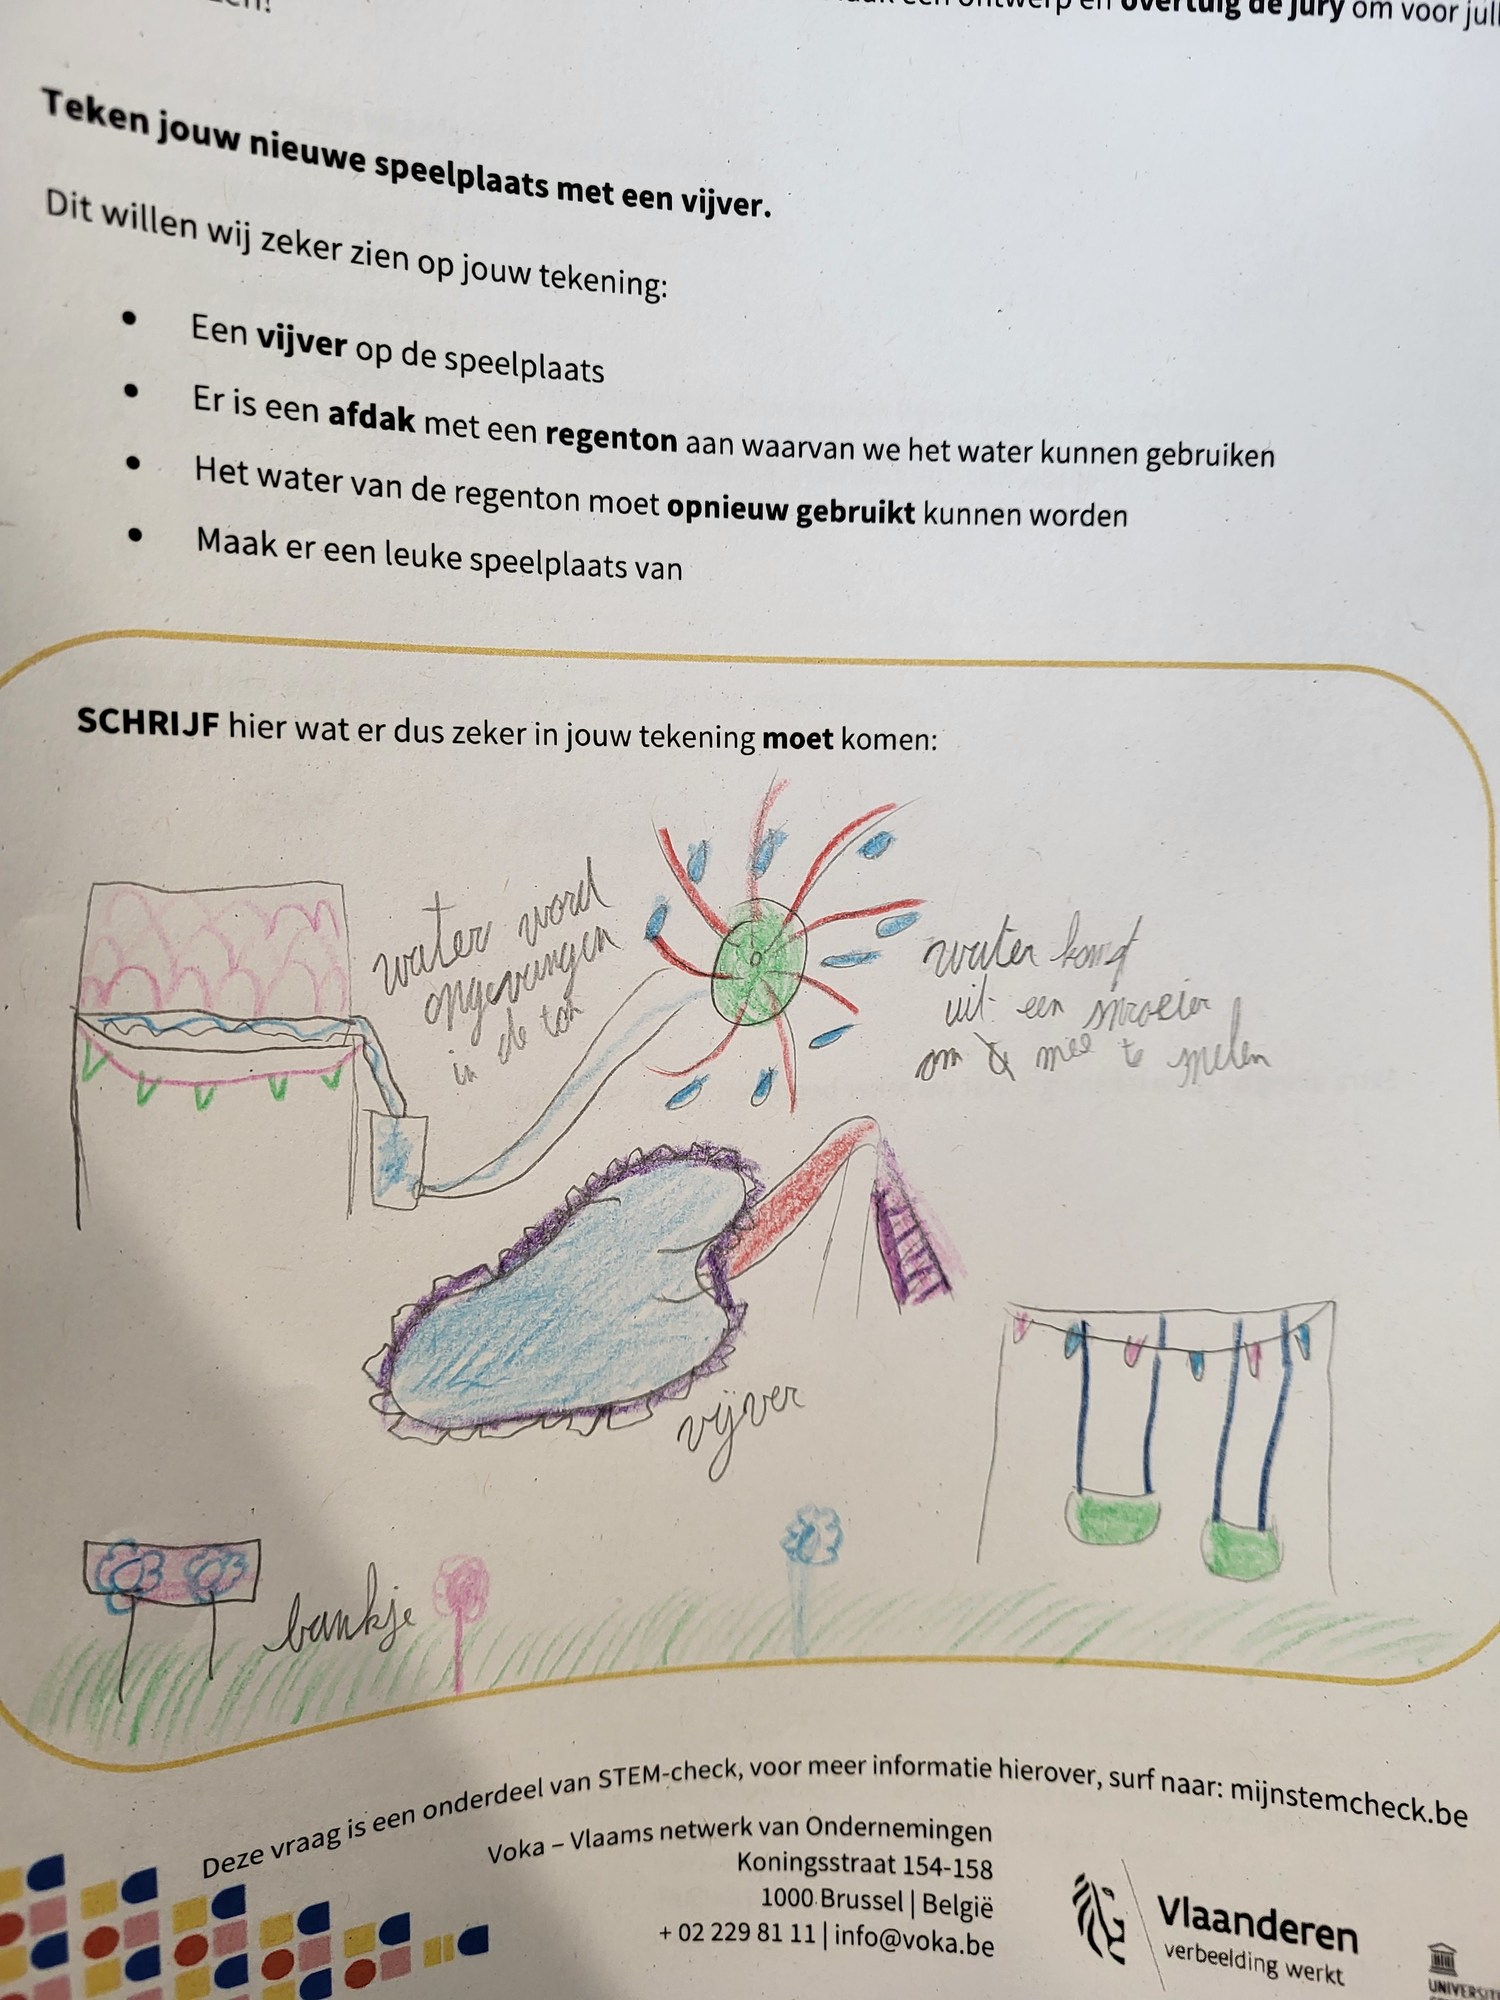 overtuig de jury om voor
Teken jouw nieuwe speelplaats met een vijver.
Dit willen wij zeker zien op jouw tekening:
• Een vijver op de speelplaats
• Er is een afdak met een regenton aan waarvan we het water kunnen gebruiken
• Het water van de regenton moet opnieuw gebruikt kunnen worden
• Maak er een leuke speelplaats van
SCHRIJF hier wat er dus zeker in jouw tekening moet komen:
water word
opgevangen
in de ton
water komt
uit een sproeier
om mee te spelen
vijver
bankje
Deze vraag is een onderdeel van STEM-check, voor meer informatie hierover, surf naar: mijnstemcheck.be
Voka – Vlaams netwerk van Ondernemingen
Koningsstraat 154-158
1000 Brussel | België
+ 02 229 81 11 | info@voka.be
Vlaanderen
verbeelding werkt